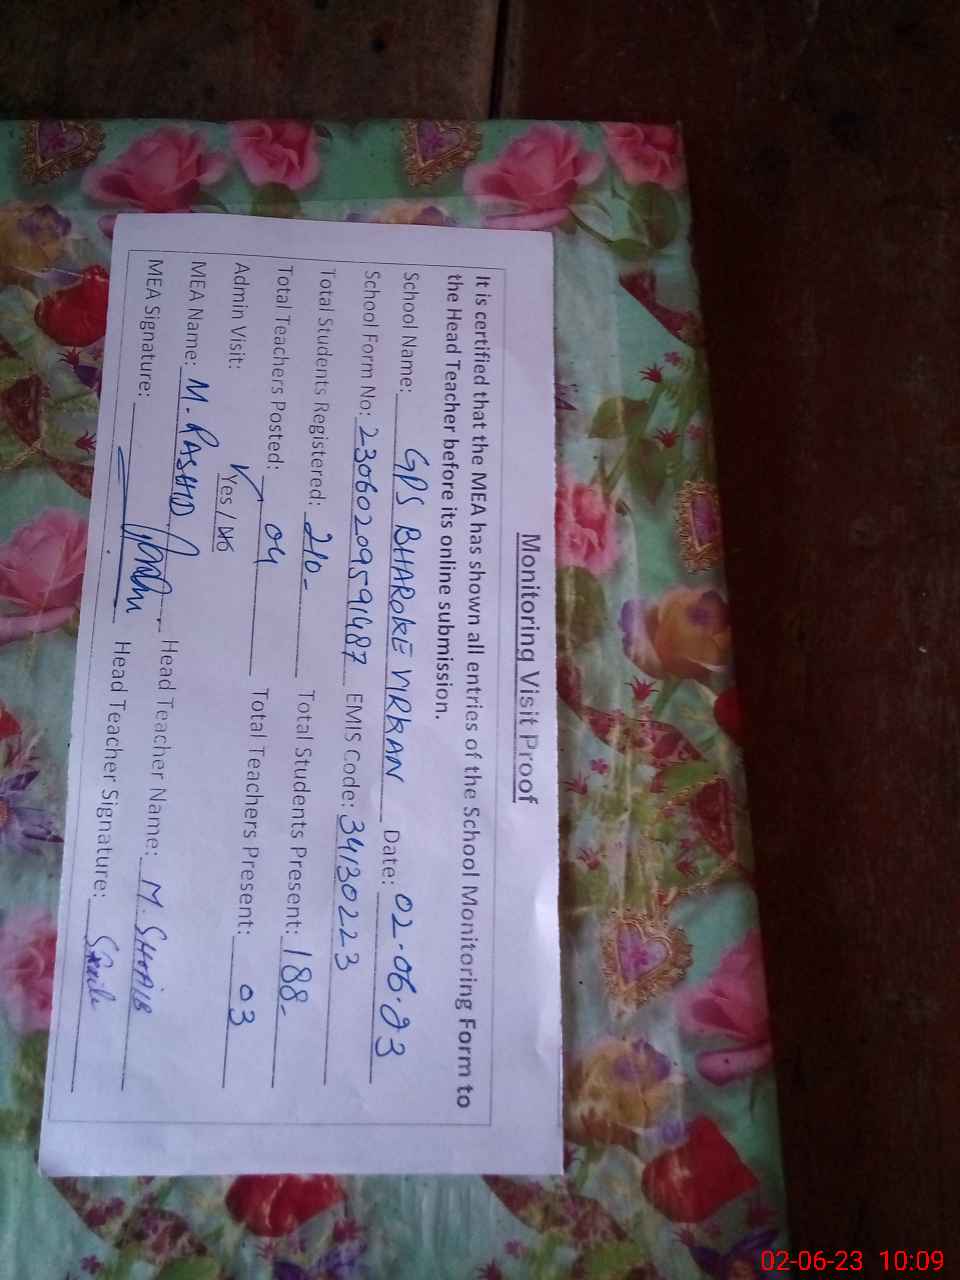 Monitoring Visit Proof
It is certified that the MEA has shown all entries of the School Monitoring Form to
the Head Teacher before its online submission.
School Name: GPS BHAROKE VIRKAN Date: 02.06.23
School Form No: 23060209591487 EMIS Code: 34130223
Total Students Registered: 210- Total Students Present: 188-
Total Teachers Posted: 04 Total Teachers Present: 03
Admin Visit: Yes / No
MEA Name: M. RASHID Head Teacher Name: M. SHOAIB
MEA Signature: Head Teacher Signature:
02-06-23 10:09